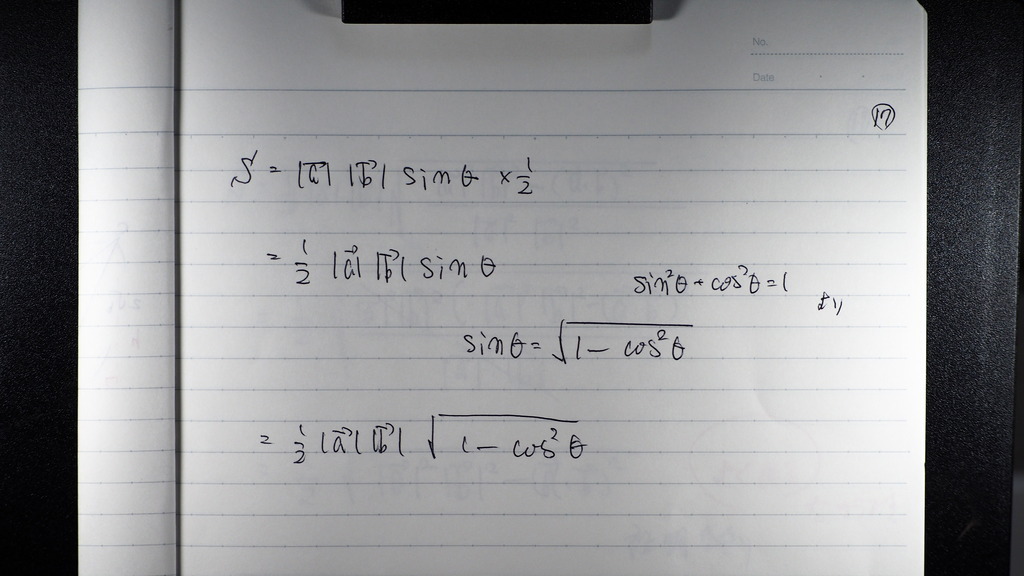 No.
Date
⑰
S = |a⃗| |b⃗| sin θ × 1/2
= 1/2 |a⃗| |b⃗| sin θ
sin²θ + cos²θ = 1 より
sin θ = √(1 − cos²θ)
= 1/2 |a⃗| |b⃗| √(1 − cos²θ)